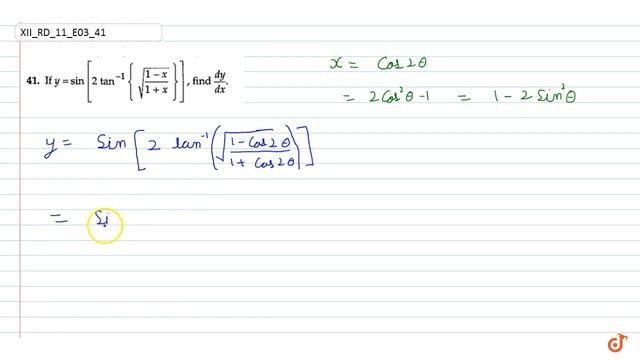 XII_RD_11_E03_41
41. If y = sin [2 tan⁻¹ {√((1−x)/(1+x))}], find dy/dx.
x = Cos2θ
= 2Cos²θ-1 = 1-2Sin²θ
y = Sin [2 tan⁻¹ (√((1-Cos2θ)/(1+Cos2θ)))]
= Si
doubtnut